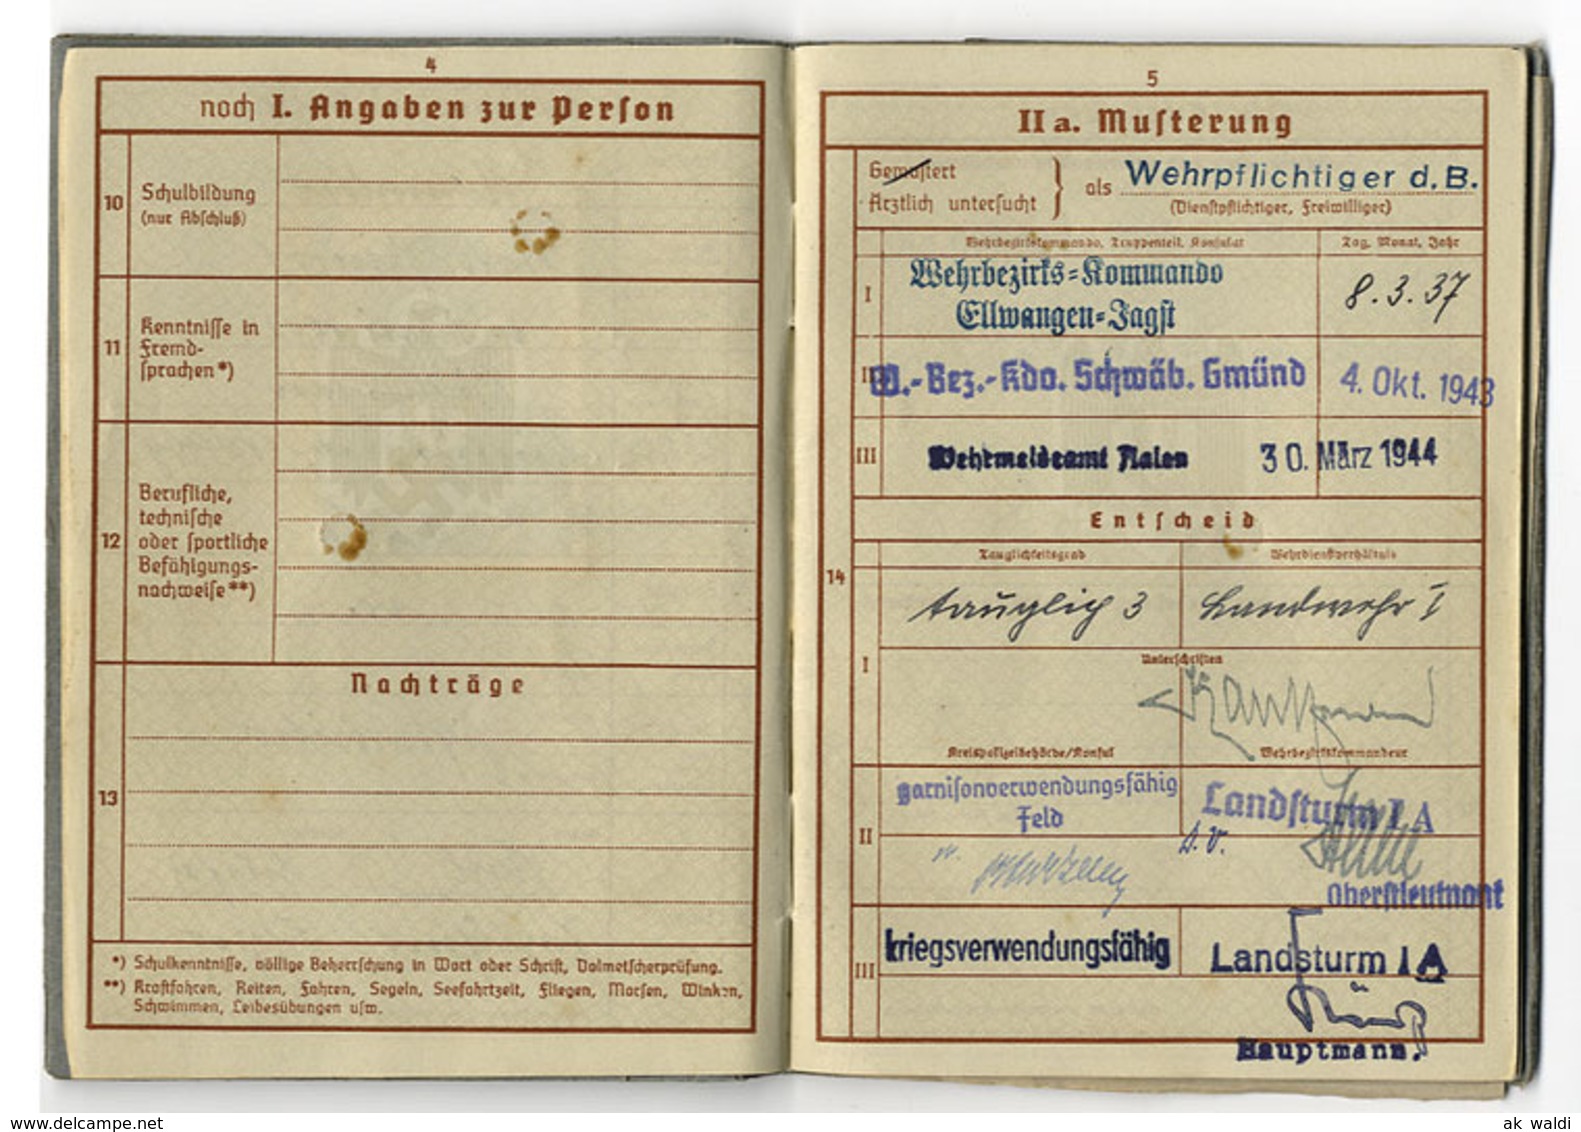 4
noch I. Angaben zur Person
10
Schulbildung
(nur Abschluß)
11
Kenntnisse in
Fremd-
sprachen*)
12
Berufliche,
technische
oder sportliche
Befähigungs-
nachweise**)
Nachträge
13
*) Schulkenntnisse, völlige Beherrschung in Wort oder Schrift, Dolmetscherprüfung.
**) Kraftfahren, Reiten, Fahren, Segeln, Seefahrtzeit, Fliegen, Morsen, Winken,
Schwimmen, Leibesübungen usw.
5
IIa. Musterung
Gemustert
Ärztlich untersucht
als Wehrpflichtiger d.B.
(Dienstpflichtiger, Freiwilliger)
Wehrbezirkskommando, Truppenteil, Konsulat
Tag, Monat, Jahr
I
Wehrbezirks-Kommando
Ellwangen-Jagst
8.3.37
II
W.-Bez.-Kdo. Schwäb. Gmünd
4. Okt. 1943
III
Wehrmeldeamt Aalen
30. März 1944
Entscheid
14
Tauglichkeitsgrad
Wehrdienstverhältnis
I
tauglich 3
Landwehr I
Unterschriften
Kreispolizeibehörde/Konsul
Wehrbezirkskommandeur
II
garnisonverwendungsfähig
Feld
Landsturm I A
Oberstleutnant
III
kriegsverwendungsfähig
Landsturm I A
Hauptmann.
www.delcampe.net
ak_waldi